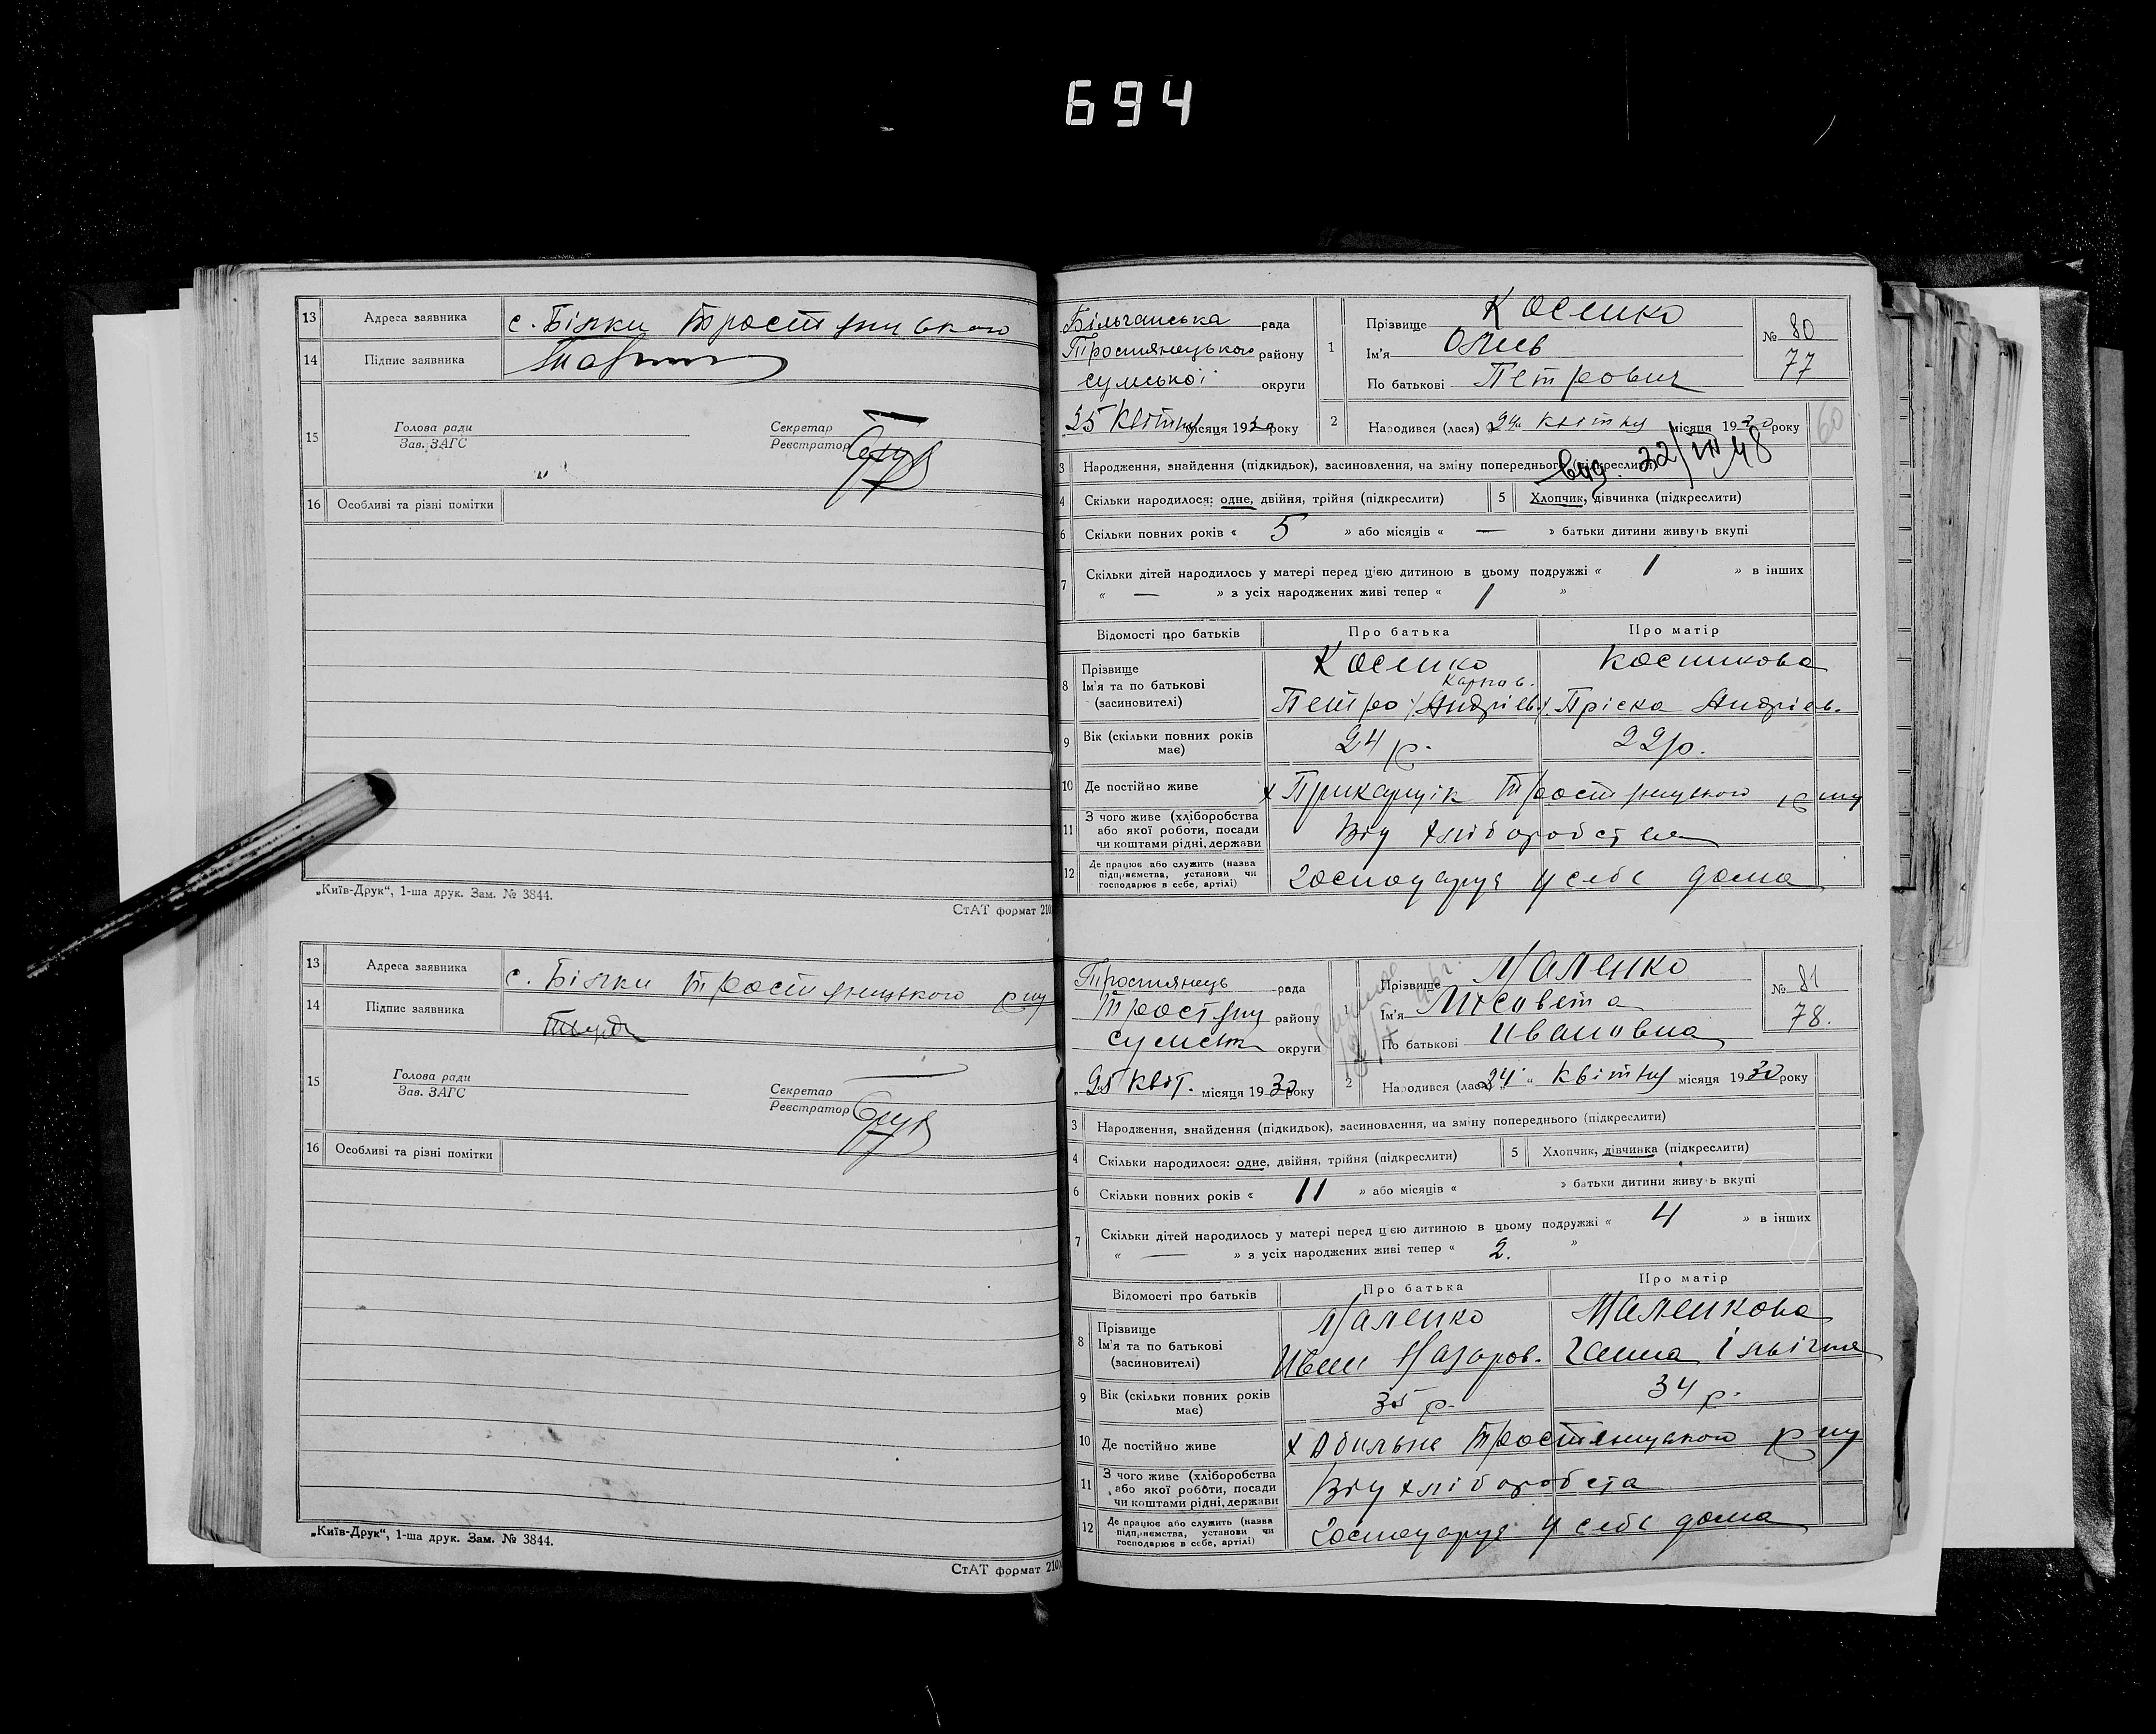 694
13 Адреса заявника с. Білки Тростянецького
14 Підпис заявника
15 Голова ради
Зав. ЗАГС
Секретар
Реєстратор
16 Особливі та різні помітки
„Київ-Друк“, 1-ша друк. Зам. № 3844.
СтАТ формат 210
13 Адреса заявника с. Білки Тростянецького р-ну
14 Підпис заявника
15 Голова ради
Зав. ЗАГС
Секретар
Реєстратор
16 Особливі та різні помітки
„Київ-Друк“, 1-ша друк. Зам. № 3844.
СтАТ формат 210
рада
Тростянецького району
Сумської округи
25 Квітня місяця 1930 року
1 Прізвище Косенко
Ім'я
По батькові Петрович
№ 80
77
2 Народився (лася) Квітня місяця 1930 року
60
3 Народження, знайдення (підкидьок), засиновлення, на зміну попереднього (підкреслити)
вид. 22/III 48
4 Скільки народилося: одне, двійня, трійня (підкреслити)
5 Хлопчик, дівчинка (підкреслити)
6 Скільки повних років « 5 » або місяців « — » батьки дитини живуть вкупі
7 Скільки дітей народилось у матері перед цією дитиною в цьому подружжі « 1 » в інших
« — » з усіх народжених живі тепер « 1 »
Відомості про батьків Про батька Про матір
8 Прізвище Косенко Косенкова
Ім'я та по батькові Карпов.
(засиновителі) Петро Андріев. Пріска Андріев.
9 Вік (скільки повних років має) 24 р. 22 р.
10 Де постійно живе х Прикащік Тростянецького р-ну
11 З чого живе (хліборобства
або якої роботи, посади
чи коштами рідні, держави
Від хліборобства
12 Де працює або служить (назва
підприємства, установи чи
господарює в себе, артілі)
Господарує у себе дома
Тростянець рада
Тростян району
Сумськ округи
25 Квіт. місяця 1930 року
1 Прізвище Маленко
Ім'я Лисавета
По батькові Ивановна
№ 81
78.
2 Народився (лася) 24 Квітня місяця 1930 року
3 Народження, знайдення (підкидьок), засиновлення, на зміну попереднього (підкреслити)
4 Скільки народилося: одне, двійня, трійня (підкреслити)
5 Хлопчик, дівчинка (підкреслити)
6 Скільки повних років « 11 » або місяців « » батьки дитини живуть вкупі
7 Скільки дітей народилось у матері перед цією дитиною в цьому подружжі « 4 » в інших
« — » з усіх народжених живі тепер « 2. »
Відомості про батьків Про батька Про матір
8 Прізвище Маленко Маленкова
Ім'я та по батькові
(засиновителі) Иван Назаров. Ганна Ільічна
9 Вік (скільки повних років має) 35 р. 34 р.
10 Де постійно живе х Тростянецького р-ну
11 З чого живе (хліборобства
або якої роботи, посади
чи коштами рідні, держави
Від хліборобста
12 Де працює або служить (назва
підприємства, установи чи
господарює в себе, артілі)
Господарує у себе дома